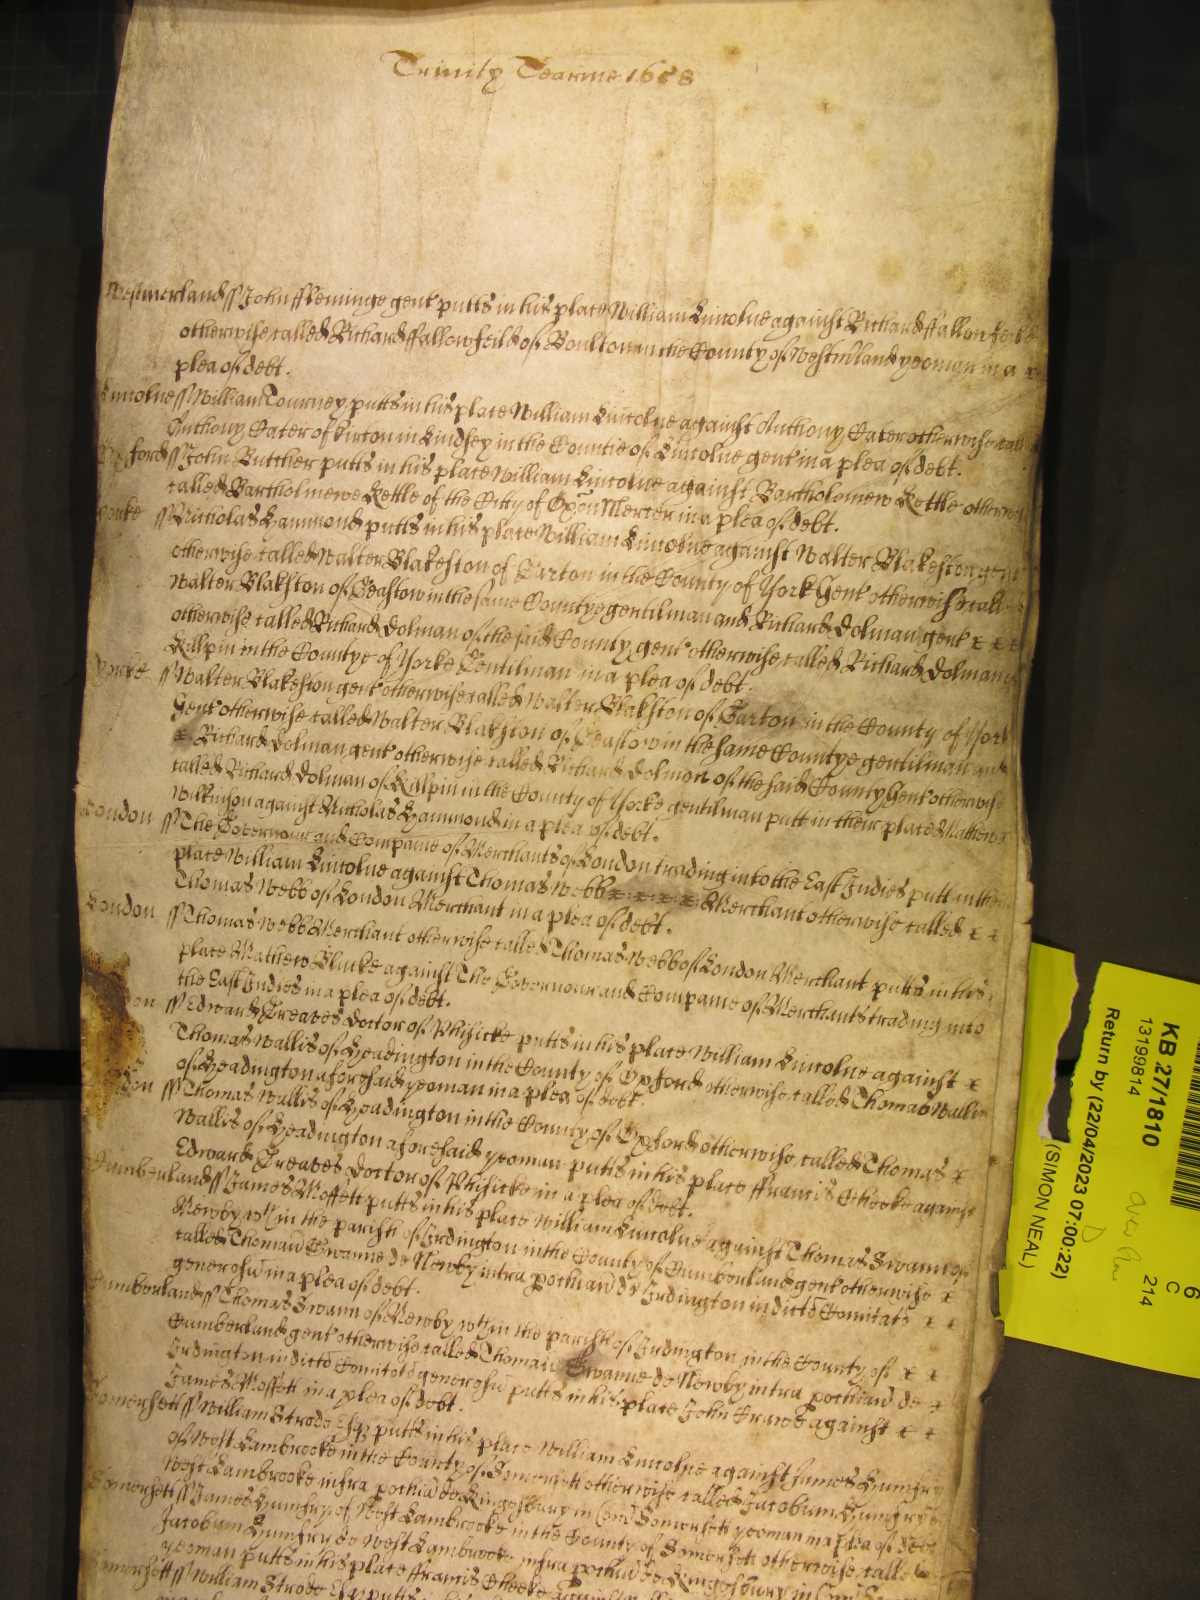 Trinity Tearme 1658
Westmerland ss John Fleminge gent putts in his place William Lincolne against Richard ffallowfeild
otherwise called Richard ffallowfeild of Boulton in the County of Westmland yeoman in a
plea of debt.
Lincolne ss William Tourney putts in his place William Lincolne against Anthony Eater otherwise call
Anthony Eater of Kirton in Lindsey in the Countie of Lincolne gent in a plea of debt.
Oxford ss John Butcher putts in his place William Lincolne against Bartholomew Kettle otherw
called Bartholmewe Kettle of the City of Oxon Mercer in a plea of debt.
Yorke ss Nicholas Hammond putts in his place William Lincolne against Walter Blakeston gent
otherwise called Walter Blakeston of Carton in the County of York Gent otherwise call
Walter Blakston of in the same Countye gentilman and Richard Dolman gent
otherwise called Richard Dolman of the said County gent otherwise called Richard Dolman
Killpin in the Countye of Yorke Gentilman in a plea of debt.
Yorke ss Walter Blakeston gent otherwise called Walter Blakston of Carton in the County of York
Gent otherwise called Walter Blakston of in the same Countye gentilman and
Richard Dolman gent otherwise called Richard Dolman of the said County Gent otherwise
called Richard Dolman of Killpin in the County of Yorke gentilman putt in their place Mathew
Wilkinson against Nicholas Hammond in a plea of debt.
London ss The Governour and Companie of Merchants of London trading into the East Indies putt in their
place William Lincolne against Thomas Webb Merchant otherwise called
Thomas Webb of London Merchant in a plea of debt.
London ss Thomas Webb Merchant otherwise called Thomas Webb of London Merchant putts in his
place Mathew Blucke against The Governour and Companie of Merchants trading into
the East Indies in a plea of debt.
on ss Edward Greaves Doctor of Phisicke putts in his place William Lincolne against
Thomas Wallis of Headington in the County of Oxford otherwise called Thomas Wallis
of Headington aforesaid yeoman in a plea of debt.
don ss Thomas Wallis of Headington in the County of Oxford otherwise called Thomas
Wallis of Headington aforesaid yeoman putts in his place ffrancis Cheeke against
Edward Greaves Doctor of Phisicke in a plea of debt.
Cumberland ss James Moffett putts in his place William Lincolne against Thomas Swann of
Newby wth in the parish of Irdington in the County of Cumberland gent otherwise
called Thomam Swanne de Newby intra pochiam de Irdington in dicto Comitatu
generosu in a plea of debt.
Cumberland ss Thomas Swann of Newby wth in the parish of Irdington in the County of
Cumberland gent otherwise called Thomam Swanne de Newby intra pochiam de
Irdington in dicto Comitatu generosu putts in his place John against
James Moffett in a plea of debt.
Somersett ss William Strode Esq putts in his place William Lincolne against James Humfry
of West Lambrooke in the County of Somersett otherwise called Jacobum Humfry de
West Lambrooke infra pochiam de Kingesbury in Com Somersett yeoman in a plea of debt
Somersett ss James Humfry of West Lambrooke in the County of Somersett otherwise called
Jacobum Humfry de West Lambrooke infra pochiam de Kingesbury in Com
yeoman putts in his place ffrancis Cheeke against
Somersett ss William Strode Esq putts in his
KB 27/1810
13199814
Return by (22/04/2023 07:00:22)
(SIMON NEAL)
6
C
214
D